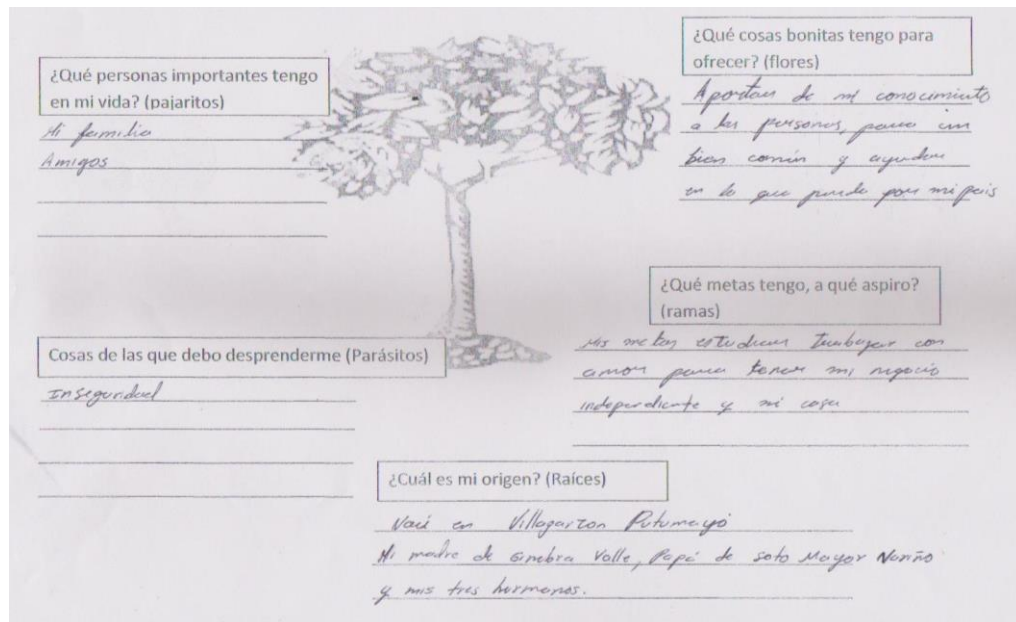 ¿Qué personas importantes tengo
en mi vida? (pajaritos)
Mi familia
Amigos
¿Qué cosas bonitas tengo para
ofrecer? (flores)
Aportar de mi conocimiento
a las personas, para un
bien común y ayudar
en lo que pueda por mi país
¿Qué metas tengo, a qué aspiro?
(ramas)
Mis metas estudiar Trabajar con
amor para tener mi negocio
independiente y mi casa
Cosas de las que debo desprenderme (Parásitos)
Inseguridad
¿Cuál es mi origen? (Raíces)
Nací en Villagarzon Putumayo
Mi madre de Ginebra Valle, Papá de Soto Mayor Nariño
y mis tres hermanos.